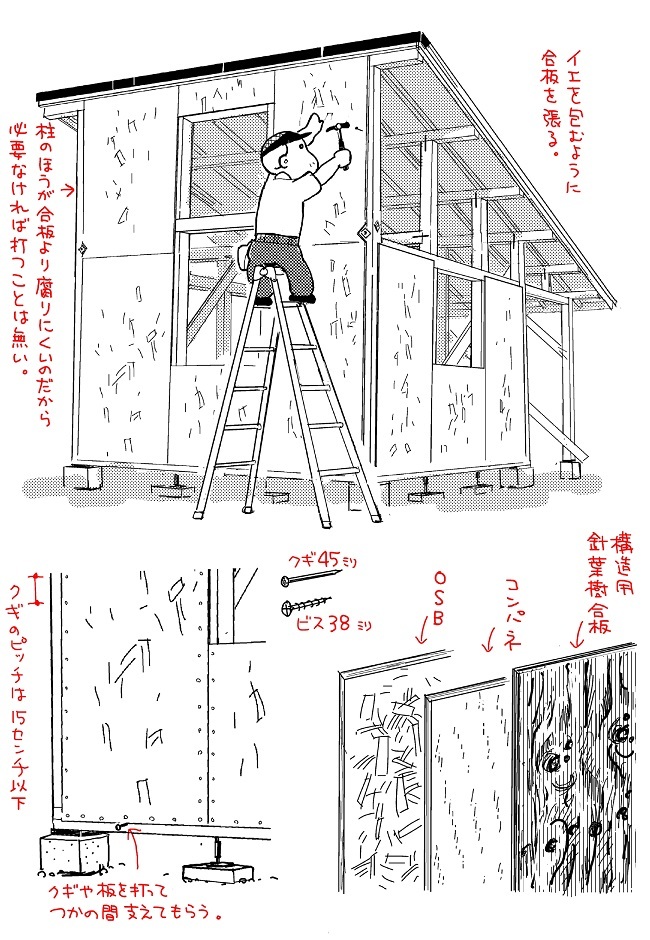 イエを包むように
合板を張る。
柱のほうが合板より腐りにくいのだから
必要なければ打つことは無い。
クギ45ミリ
ビス38ミリ
クギのピッチは15センチ以下
クギや板を打って
つかの間支えてもらう。
構造用
針葉樹合板
コンパネ
OSB